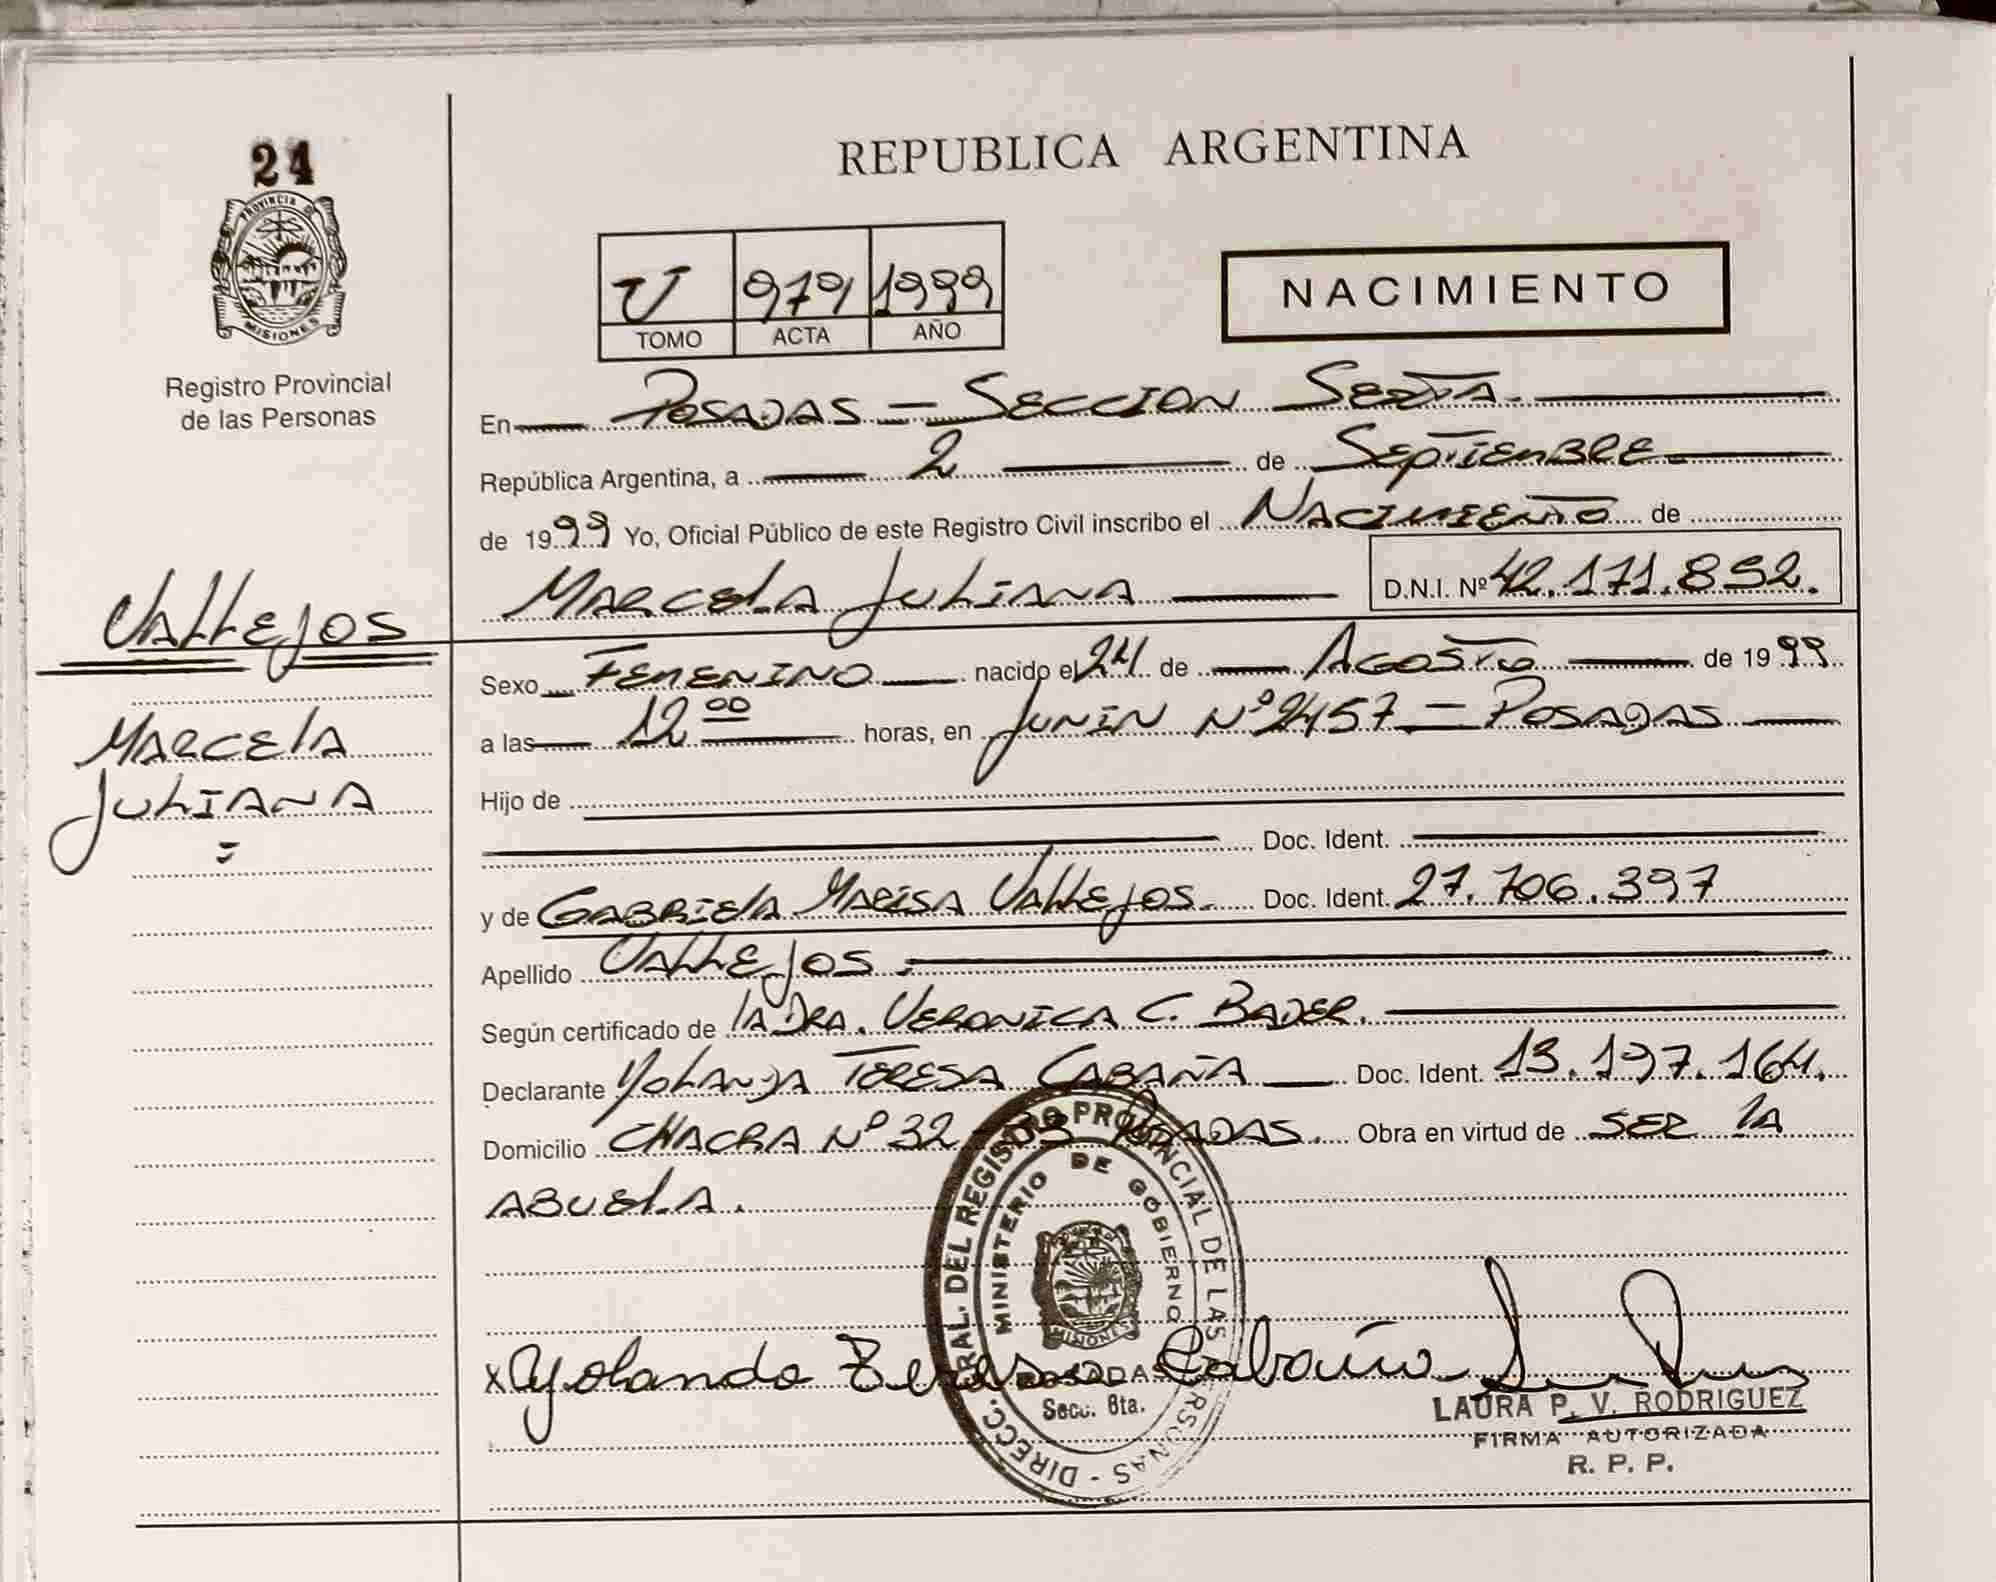 24
PROVINCIA DE
MISIONES
Registro Provincial
de las Personas
VALLEJOS
MARCELA
JULIANA
REPUBLICA ARGENTINA
U 979 1999
TOMO ACTA AÑO
NACIMIENTO
En POSADAS - SECCION SEXTA.
República Argentina, a 2 de SEPTIEMBRE
de 1999 Yo, Oficial Público de este Registro Civil inscribo el NACIMIENTO de
MARCELA JULIANA D.N.I. Nº 42.171.892.
Sexo FEMENINO nacido el 24 de AGOSTO de 1999
a las 12 00 horas, en JUNIN Nº 2457 - POSADAS
Hijo de
Doc. Ident.
y de GABRIELA MARISA VALLEJOS. Doc. Ident. 27.706.397
Apellido VALLEJOS.
Según certificado de LA DRA. VERONICA C. BADER.
Declarante YOLANDA TERESA CABAÑA Doc. Ident. 13.197.164.
Domicilio CHACRA Nº 32 33 POSADAS. Obra en virtud de SER LA
ABUELA.
DIRECC. GRAL. DEL REGISTRO PROVINCIAL DE LAS PERSONAS -
MINISTERIO DE GOBIERNO
MISIONES
POSADAS
Secc. 6ta.
x Yolanda Teresa Cabaña
LAURA P. V. RODRIGUEZ
FIRMA AUTORIZADA
R. P. P.